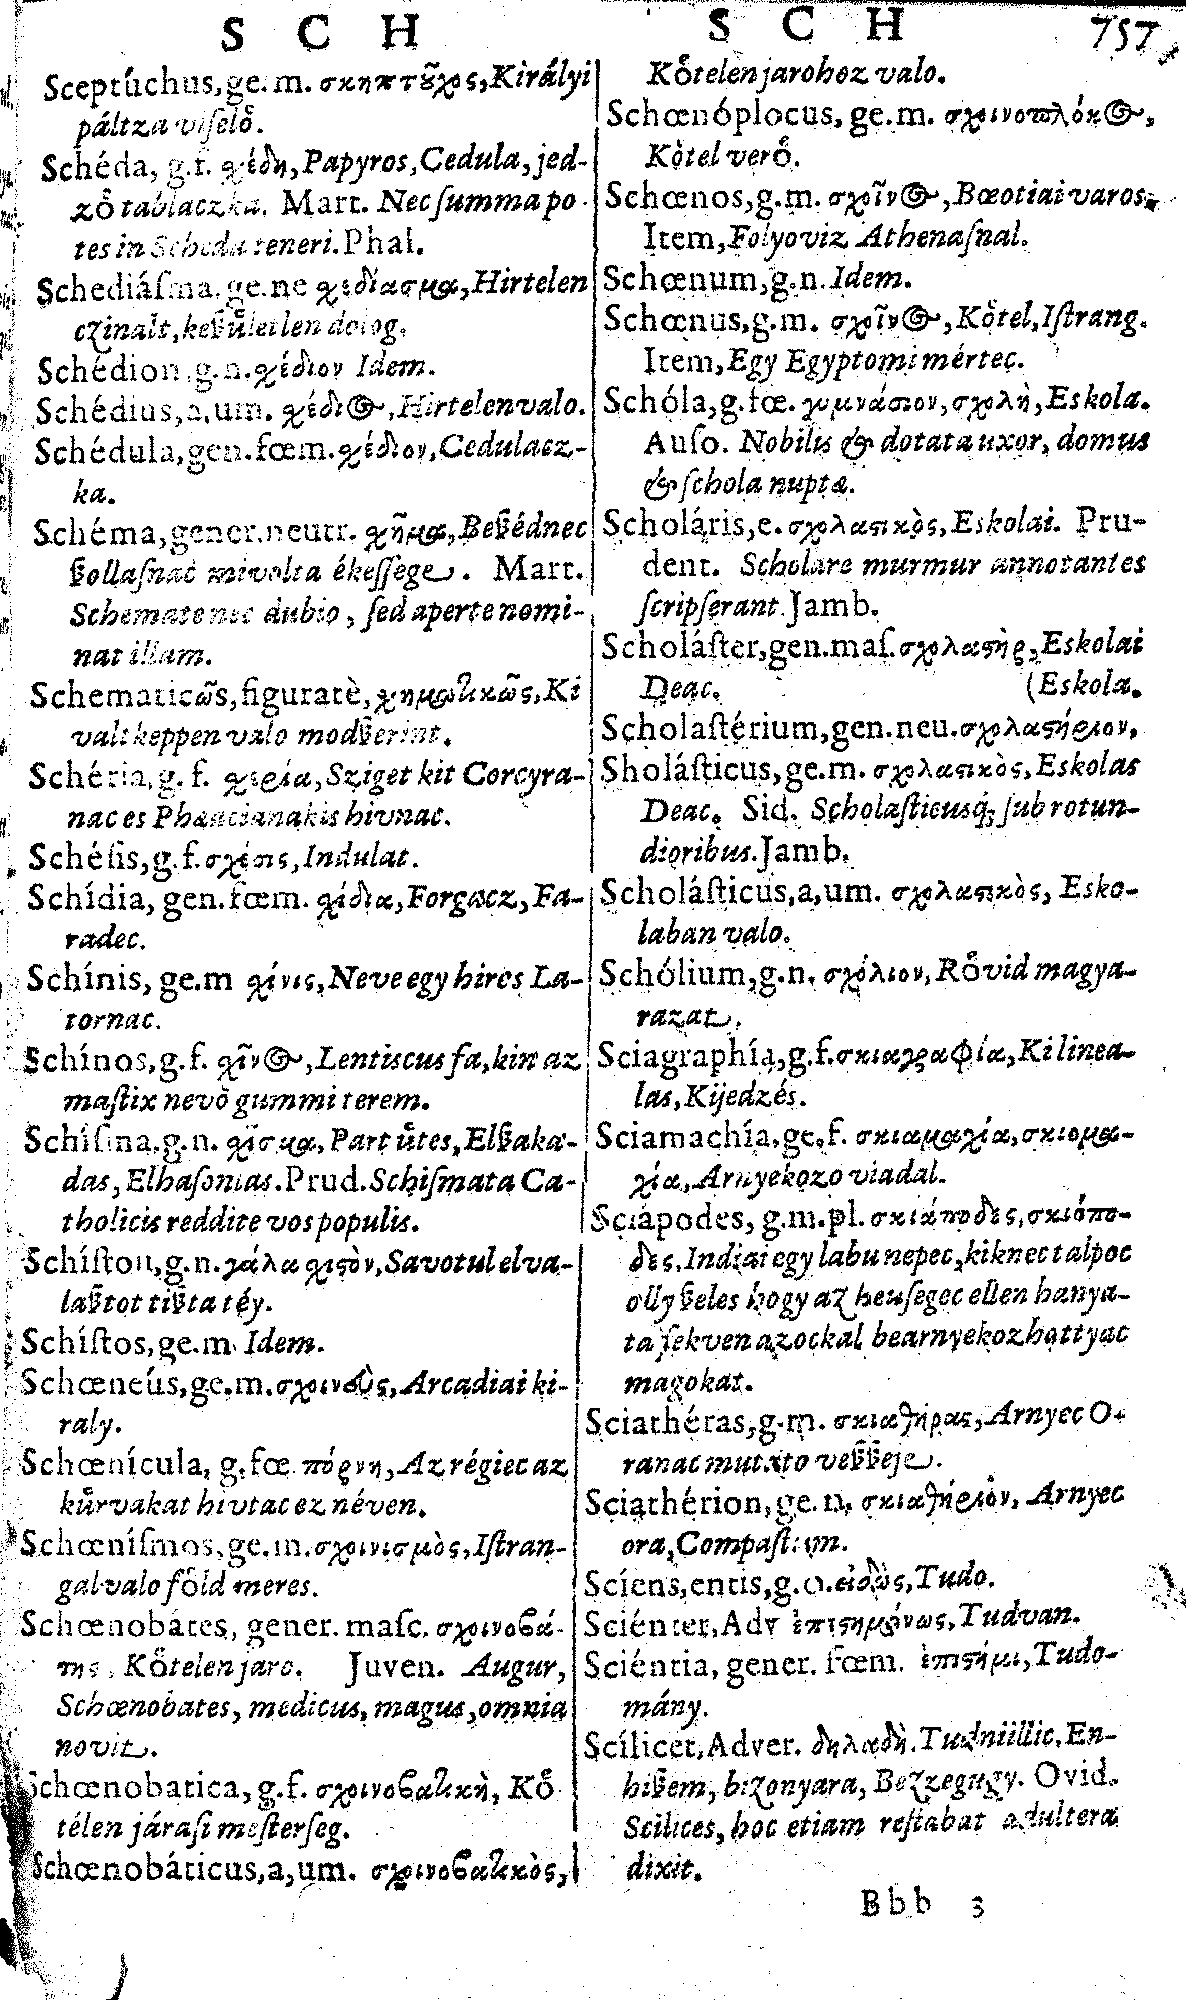 S C H
S C H
757
Sceptúchus, ge. m. σκηπτȣ̃χος, Királyi
páltza viſelő.
Schéda, g. f. χέδη, Papyros, Cedula, jed-
ző tablaczka. Mart. Nec ſumma po-
tes in Scheda teneri. Phal.
Schediáſma, ge. ne χεδίασμα, Hirtelen
czinalt, keſzületlen dolog.
Schédion, g. n. χέδιον Idem.
Schédius, a, um. χέδιος, Hirtelen valo.
Schédula, gen. fœm. χέδιον, Cedulacz-
ka.
Schéma, gener. neutr. χῆμα, Beſzédnec
ſzollaſnac mivolta ékeſſege. Mart.
Schemate nec dubio, ſed aperte nomi-
nat illam.
Schematicω̃s, figuratè, χηματικῶς, Ki
valt keppen valo modſzerint.
Schéria, g. f. χερία, Sziget kit Corcyra-
nac es Phæacianakis hivnac.
Schéſis, g. f. σχέσις, Indulat.
Schídia, gen. fœm. χίδια, Forgacz, Fa-
radec.
Schínis, ge. m χίνις, Neve egy hires La-
tornac.
Schínos, g. f. χῖνος, Lentiscus fa, kin az
maſtix nevő gummi terem.
Schíſma, g. n. χῖσμα, Part űtes, Elſzaka-
das, Elhaſonlas. Prud. Schiſmata Ca-
tholicis reddite vos populis.
Schíſton, g. n. γάλα χιςὸν, Savotul elva-
laſztot tiſzta téy.
Schíſtos, ge. m. Idem.
Schœneús, ge. m. σχοινεὺς, Arcadiai ki-
raly.
Schœnícula, g. fœ. πόρνη, Az régiec az
kűrvakat hivtac ez néven.
Schœníſmos, ge. m. σχοινισμὸς, Iſtran-
gal valo főld meres.
Schœnobátes, gener. maſc. σχοινοβά-
της, Kőtelen jaro. Juven. Augur,
Schœnobates, medicus, magus, omnia
novit.
Schœnobatica, g. f. σχοινοβατικὴ, Kő
télen járaſi meſterſeg.
Schœnobáticus, a, um. σχοινοβατικὸς,
Kőtelen jarohoz valo.
Schœnóplocus, ge. m. σχοινοπλόκος,
Kòtel verő.
Schœnos, g. m. σχοῖνος, Bœotiai varos.
Item, Folyoviz Athenaſnal.
Schœnum, g. n. Idem.
Schœnus, g. m. σχοῖνος, Kőtel, Iſtrang.
Item, Egy Egyptomi mértec.
Schóla, g. fœ. γυμνάσιον, σχολὴ, Eskola.
Auſo. Nobilis & dotata uxor, domus
& ſchola nuptæ.
Scholáris, e. σχολαςικὸς, Eskolai. Pru-
dent. Scholare murmur annotantes
ſcripſerant Jamb.
Scholáſter, gen. maſ. σχολαςὴρ, Eskolai
Deac. (Eskola.
Scholaſtérium, gen. neu. σχολαςήριον,
Sholáſticus, ge. m. σχολαςικὸς, Eskolas
Deac. Sid. Scholaſticusq́; ſub rotun-
dioribus. Jamb.
Scholáſticus, a, um. σχολαςικὸς, Esko-
laban valo.
Schólium, g. n. σχόλιον, Rővid magya-
razat.
Sciagraphía, g. f. σκιαγραφία, Ki linea-
las, Kijedzés.
Sciamachía, ge. f. σκιαμαχία, σκιομα-
χία, Arnyekozo viadal.
Sciápodes, g. m. pl. σκιάποδες, σκιόπο-
δες, Indiai egy labu nepec, kiknec talpoc
olly ſzeles hogy az heuſegec ellen hanya-
ta fekven azockal bearnyekozhattyac
magokat.
Sciathéras, g. m. σκιαθήρας, Arnyec O-
ranac mutato veſzſzeje.
Sciathérion, ge. n. σκιαθήριον, Arnyec
ora, Compaſtum.
Scíens, entis, g. o. εἰδὼς, Tudo.
Sciénter, Adv ἐπιςημόνως, Tudvan.
Sciéntia, gener. fœm. ἐπιςήμι, Tudo-
mány.
Scílicet, Adver. δηλαδὴ. Tudniillic, En-
hiſzem, bizonyara, Bezzegugy. Ovid.
Scilices, hoc etiam reſtabat adultera
dixit.
Bbb 3